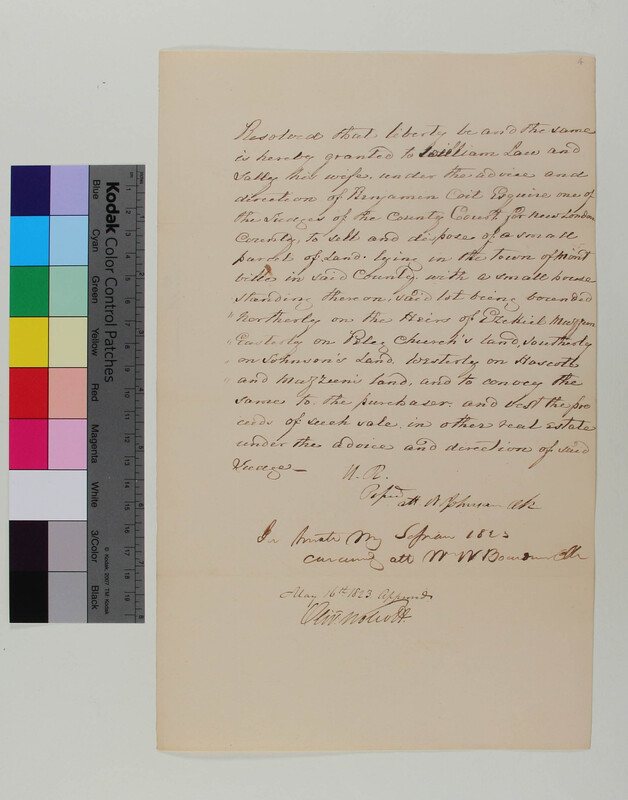 4
Resolved that liberty be and the same
is hereby granted to William Law and
Sally his wife, under the advice and
direction of Benjamin Coit Esquire one of
the Judges of the County Court for New London
County, to sell and dispose of a small
parcel of Land lying in the town of Mont
ville in said County with a small house
standing thereon, said lot being bounded
" Northerly on the Heirs of Ezekiel
" Easterly on Church's land, Southerly
" on Johnson's Land Westerly on
" and land, and to convey the
same to the purchaser and vest the pro
ceeds of such sale, in other real estate
under the advice and direction of said
Judge —
H. R.
Pass'd
att Clk
In Senate May Session 1823
att W W Clk
May 16th 1823 Approved
Oliv Wolcott
Kodak Color Control Patches
Blue Cyan Green Yellow Red Magenta White 3/Color Black
1 2 3 4 5 6 7 8 9 10 11 12 13 14 15 16 17 18 19
© Kodak, 2007 TM: Kodak